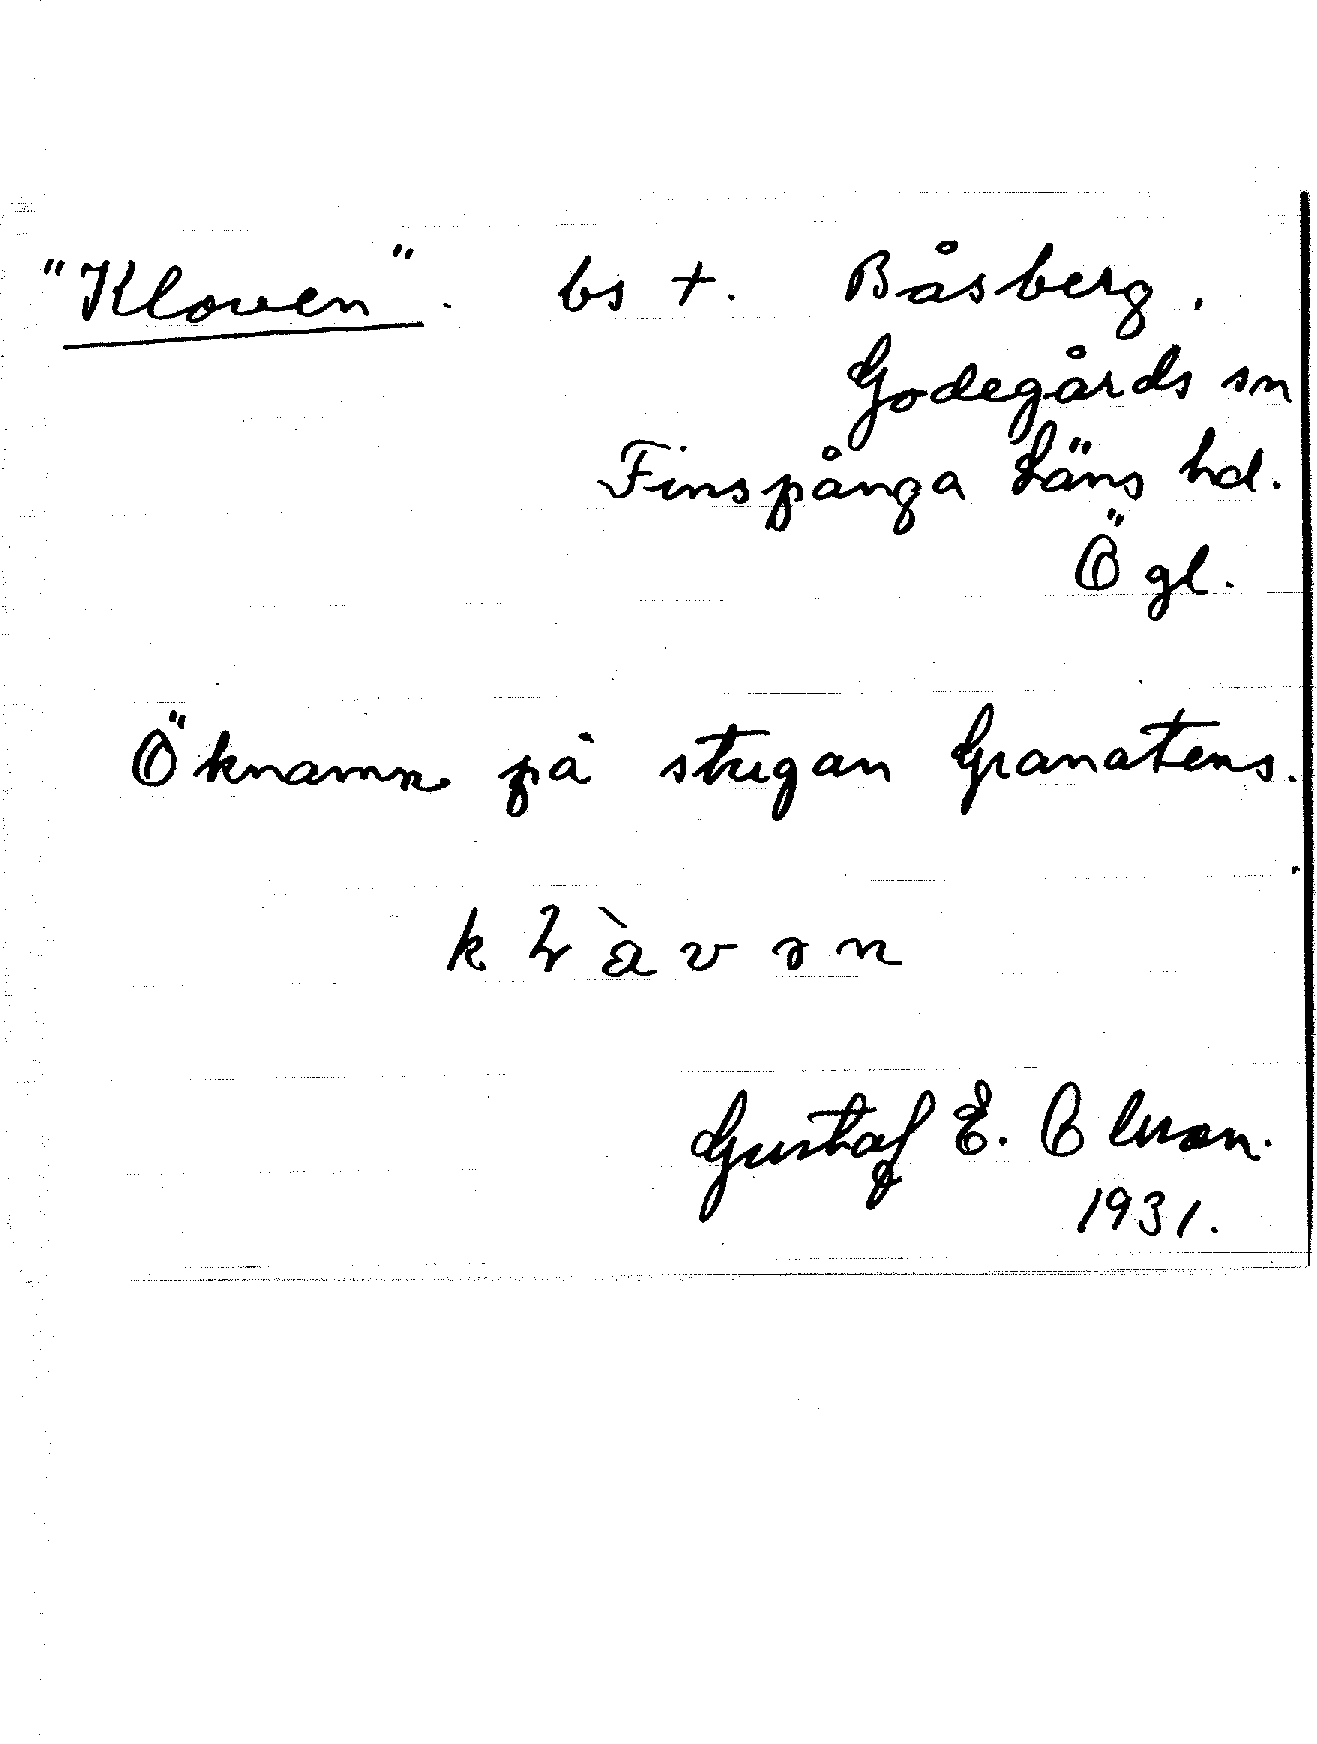 "Kloven". bs +. Båsberg,
Godegårds sn
Finspånga Läns hd.
Ögl.
Öknamn på stugan Granatens.
Gustaf E. Olsson.
1931.